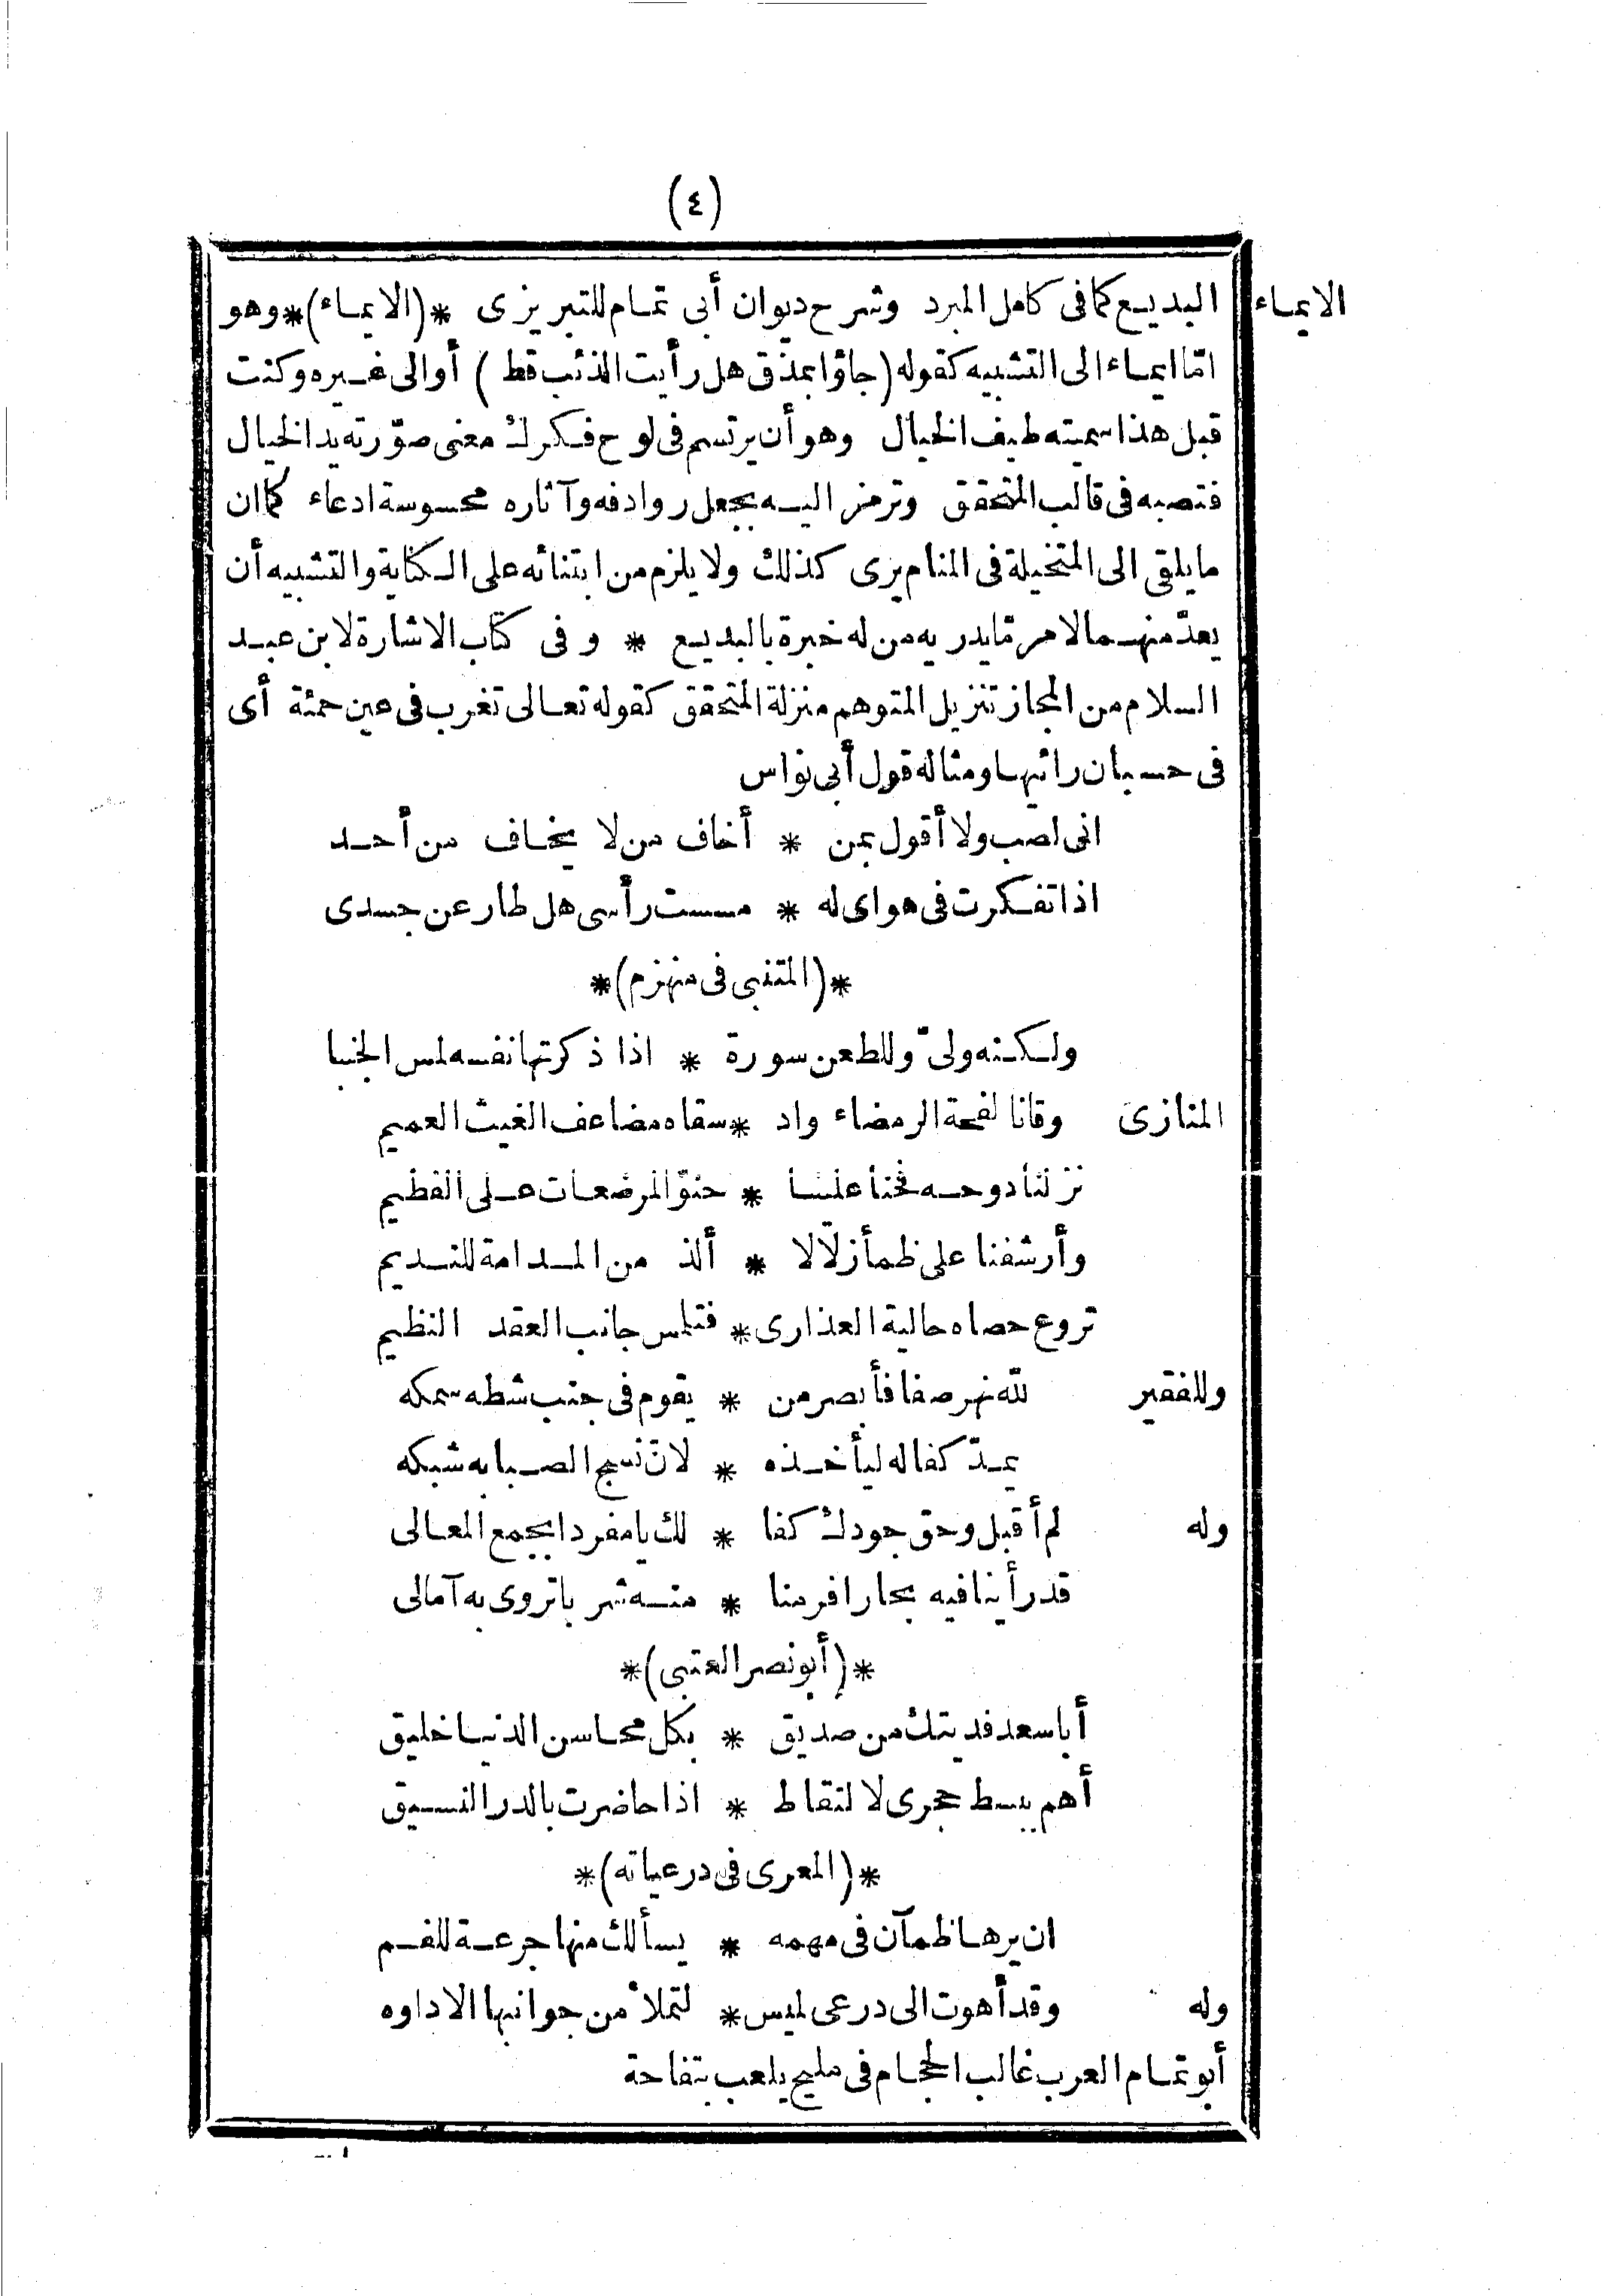 (٤)
الايماء
البديع كما فى كامل المبرد وشرح ديوان أبى تمام للتبريزى *(الايماء)* وهو
امّا ايماء الى التشبيه كقوله (جاؤا بمذق هل رأيت الذئب قط) أو الى غيره وكنت
قبل هذا سميته طيف الخيال وهو أن يرتسم فى لوح فكرك معنى صوّرته يد الخيال
فتصبه فى قالب المتحقق وترمز اليه بجعل روادفه وآثاره محسوسة ادعاء كما ان
ما يلقى الى المتخيلة فى المنام يرى كذلك ولا يلزم من ابتنائه على الكناية والتشبيه أن
يعدّ منهما لامر مّا يدريه من له خبرة بالبديع * وفى كتاب الاشارة لابن عبد
السلام من المجاز تنزيل المتوهم منزلة المتحقق كقوله تعالى تغرب فى عين حمئة أى
فى حسبان رائيها ومثاله قول أبى نواس
انى لصب ولا أقول بمن * أخاف من لا يخاف من أحد
اذا تفكرت فى هواى له * مسست رأسى هل طار عن جسدى
*(المتنبى فى منهزم)*
ولكنه ولىّ وللطعن سورة * اذا ذكرتها نفسه لمس الجنبا
المنازى وقانا لفحة الرمضاء واد * سقاه مضاعف الغيث العميم
نزلنا دوحه فحنا علينا * حنوّ المرضعات على الفطيم
وأرشفنا على ظمأ زلالا * ألذ من المدامة للنديم
تروع حصاه حالية العذارى * فتلمس جانب العقد النظيم
وللفقير لله نهر صفا فأبصر من * يقوم فى جنب شطه سمكه
يمدّ كفا له ليأخذه * لانّ نسج الصبا به شبكه
وله لم أقبل وحق جودك كفا * لك يا مفردا بجمع المعالى
قد رأينا فيه بحارا فرمنا * منه شربا تروى به آمالى
*(أبو نصر العتبى)*
أبا سعد فديتك من صديق * بكل محاسن الدنيا خليق
أهم ببسط حجرى لالتقاط * اذا حاضرت بالدر النسيق
*(المعرى فى درعياته)*
ان يرها ظمآن فى مهمه * يسألك منها جرعة للفم
وله وقد أهوت الى درعى لميس * لتملأ من جوانبها الاداوه
أبو تمام العرب غالب الحجام فى مليح يلعب بتفاحة